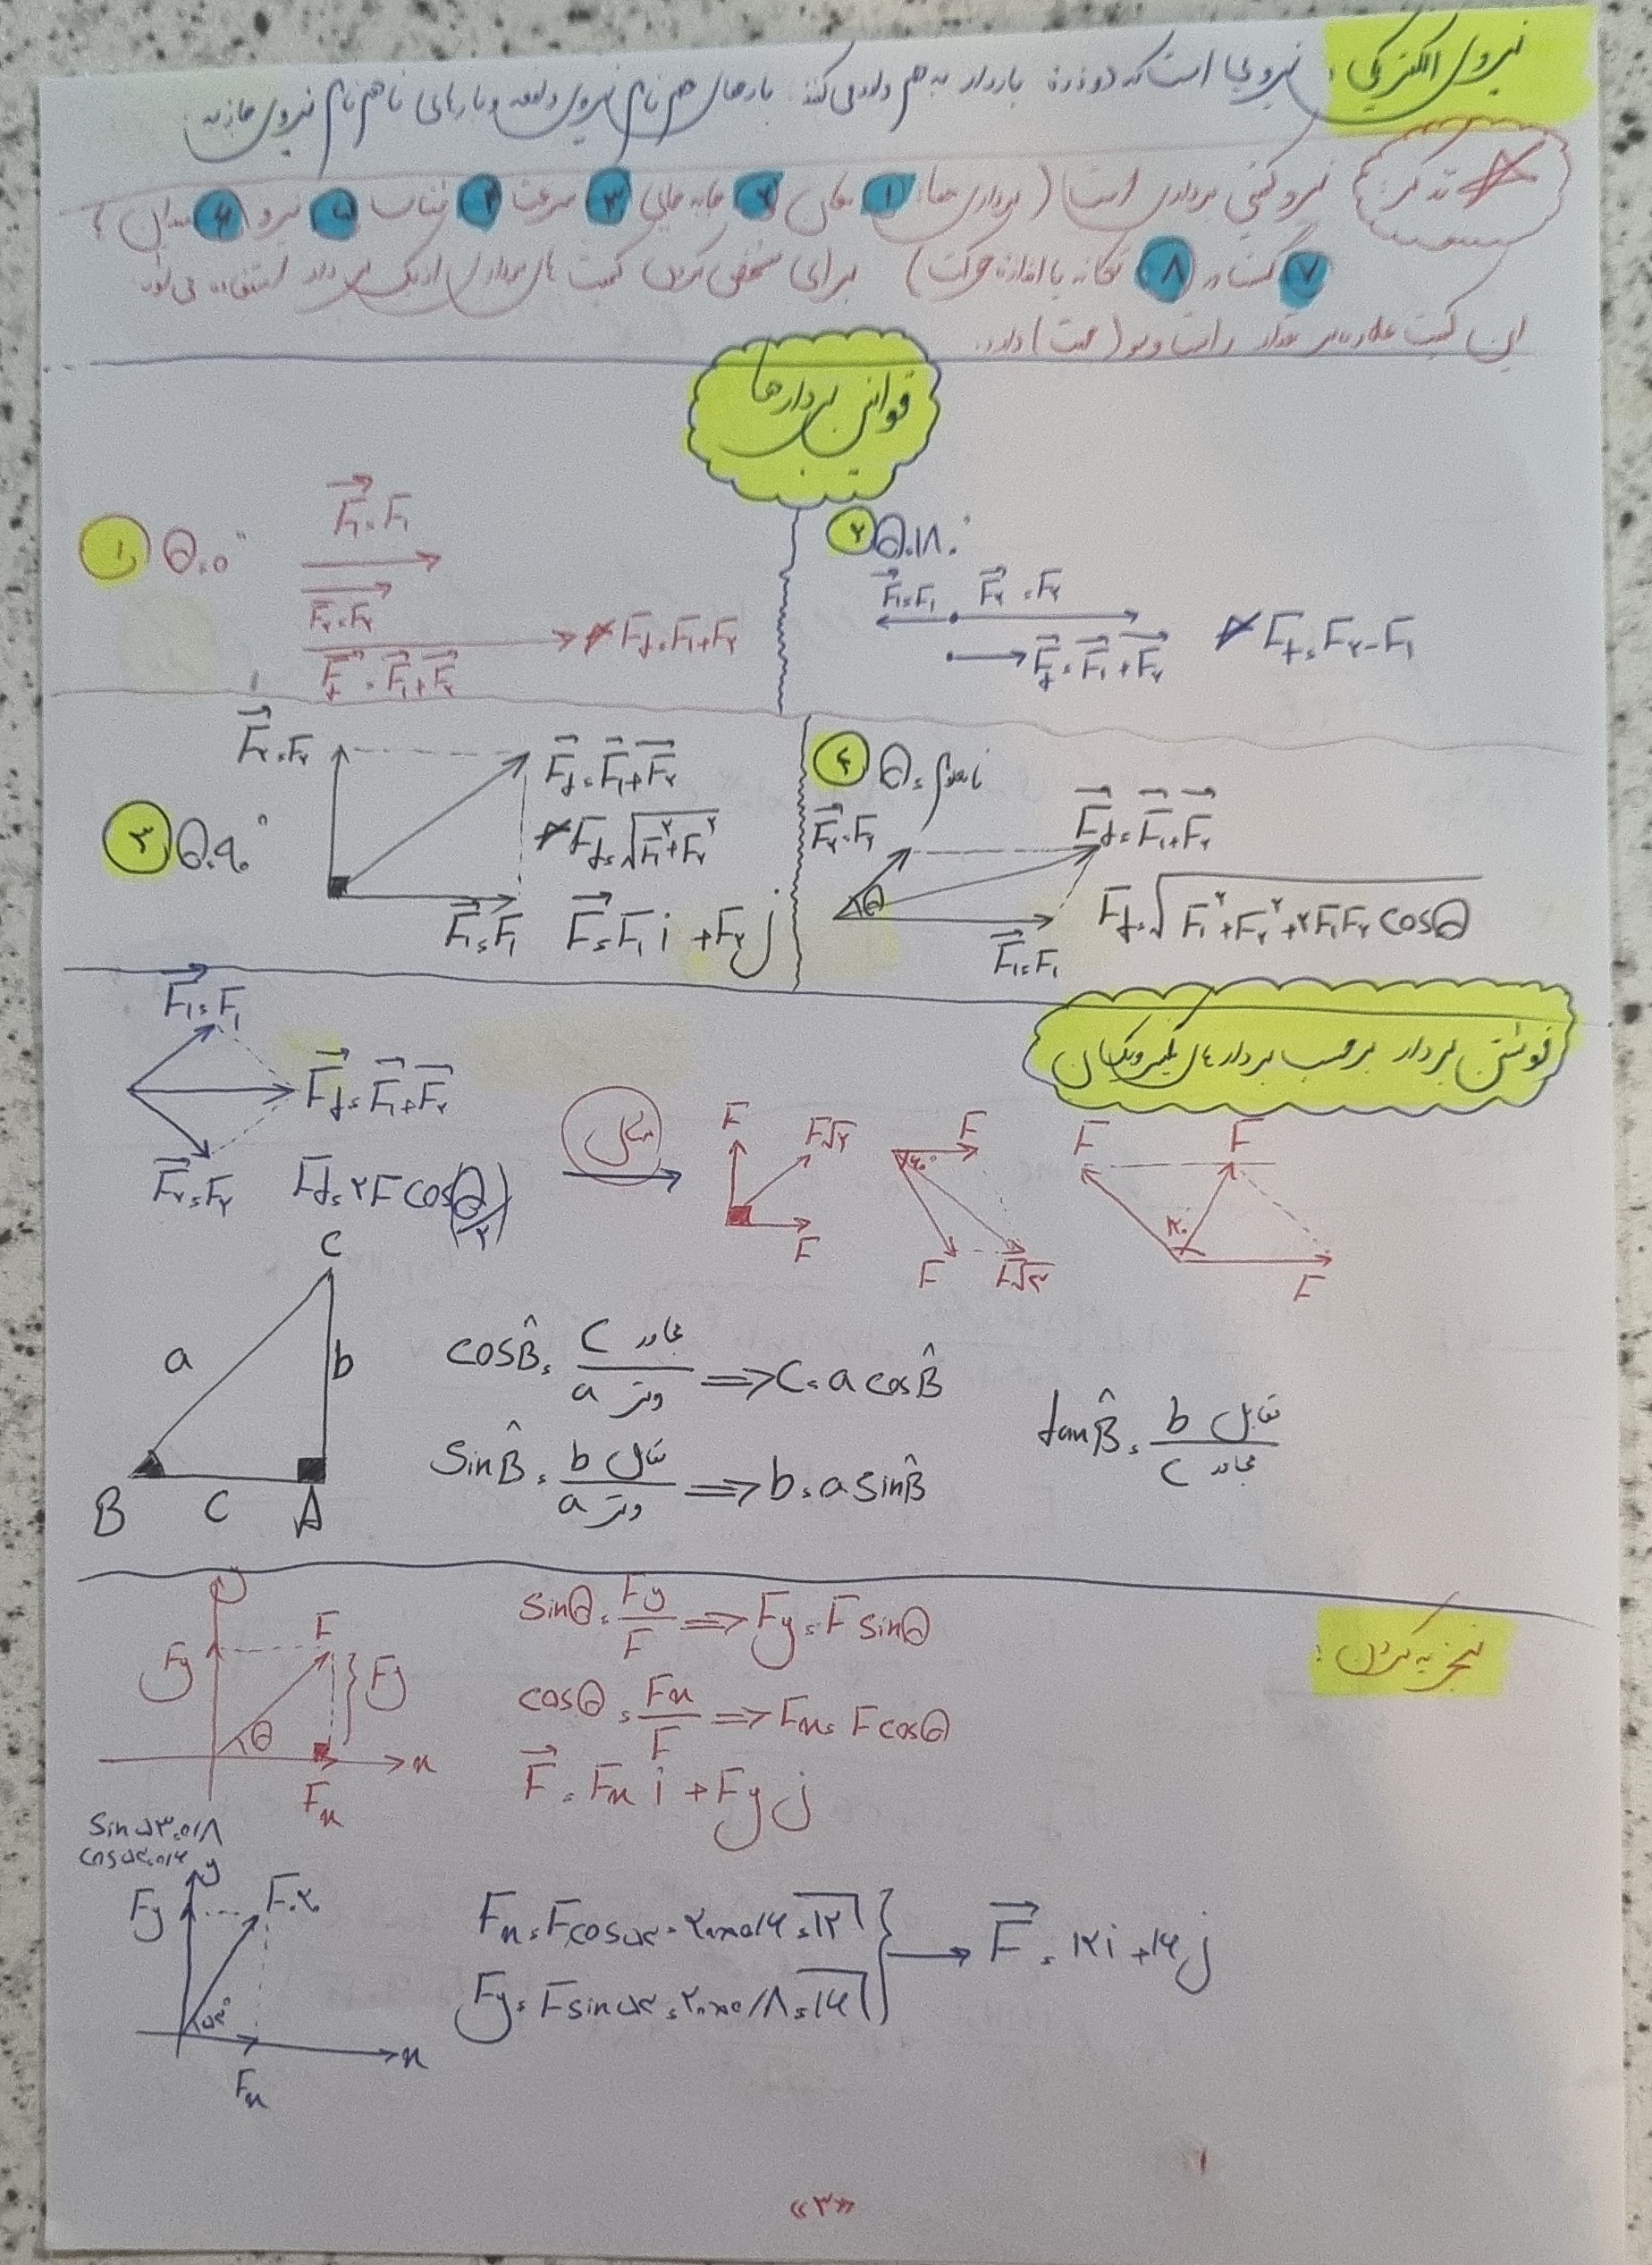 نیروی الکتریکی: نیرویی است که دو ذره باردار به هم وارد می‌کنند. بارهای هم نام نیروی دافعه و بارهای ناهم نام نیروی جاذبه
تذکر: نیرو کمیتی برداری است (برداری ها: ۱ مکان ۲ جابه جایی ۳ سرعت ۴ شتاب ۵ نیرو ۶ میدان
۷ گشتاور ۸ تکانه یا اندازه حرکت) برای مشخص کردن کمیت های برداری از یک بردار استفاده می‌شود
این کمیت علاوه بر مقدار راستا و سو (جهت) دارد.
قوانین بردارها
۱ θ=0°
F₁=F₁
F₂=F₂
F_t=F₁+F₂
F_t=F₁+F₂
۲ θ=۱۸۰°
F₁=F₁ F₂=F₂
F_t=F₁+F₂
F_t=F₂-F₁
۳ θ=۹۰°
F₂=F₂
F_t=F₁+F₂
F_t=√(F₁²+F₂²)
F₁=F₁ F=F₁i+F₂j
۴ θ= نامعلوم
F₂=F₂
F_t=F₁+F₂
θ
F₁=F₁
F_t=√(F₁²+F₂²+۲F₁F₂ cosθ)
نوشتن بردار برحسب بردارهای یکه
F₁=F₁
F_t=F₁+F₂
F₂=F₂ F_t=۲F cos(θ/۲)
مثال
F F√۲ F
F ۶۰° F F√۳
F F ۱۲۰ F
C
a b
B c A
cosB̂= c مجاور / a وتر ⇒ c=a cosB̂
sinB̂= b مقابل / a وتر ⇒ b=a sinB̂
tanB̂= b مقابل / c مجاور
تجزیه کردن:
y
Fy F Fy
θ x
Fx
sinθ=Fy/F ⇒ Fy=F sinθ
cosθ=Fx/F ⇒ Fx=F cosθ
F=Fx i+Fy j
sin۵۳=0/۸
cos۵۳=0/۶
y
Fy F=۲۰
۵۳° x
Fx
Fx=Fcos۵۳=۲۰×0/۶=۱۲
Fy=Fsin۵۳=۲۰×0/۸=۱۶
F=۱۲i+۱۶j
«۳»